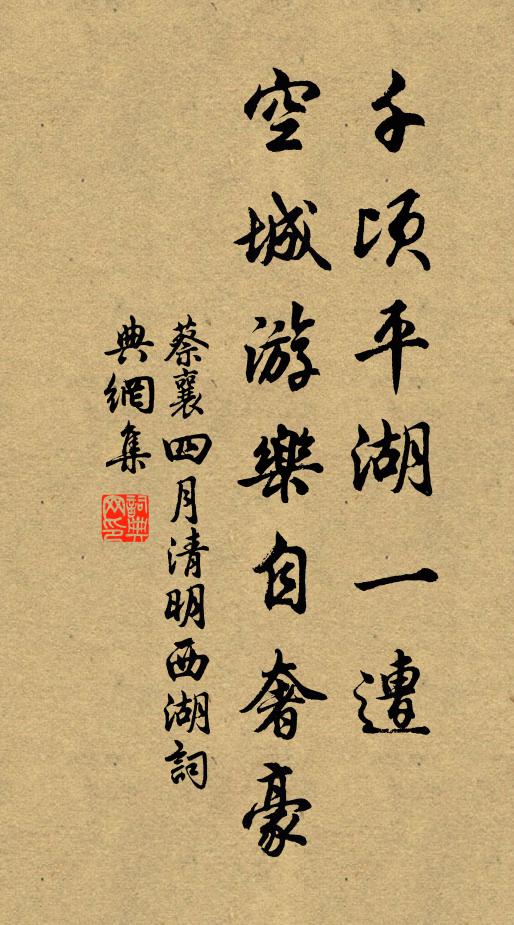 千頃平湖一遭
空城游樂自奢豪
蔡襄四月清明西湖詞
典網集
詞典
网印